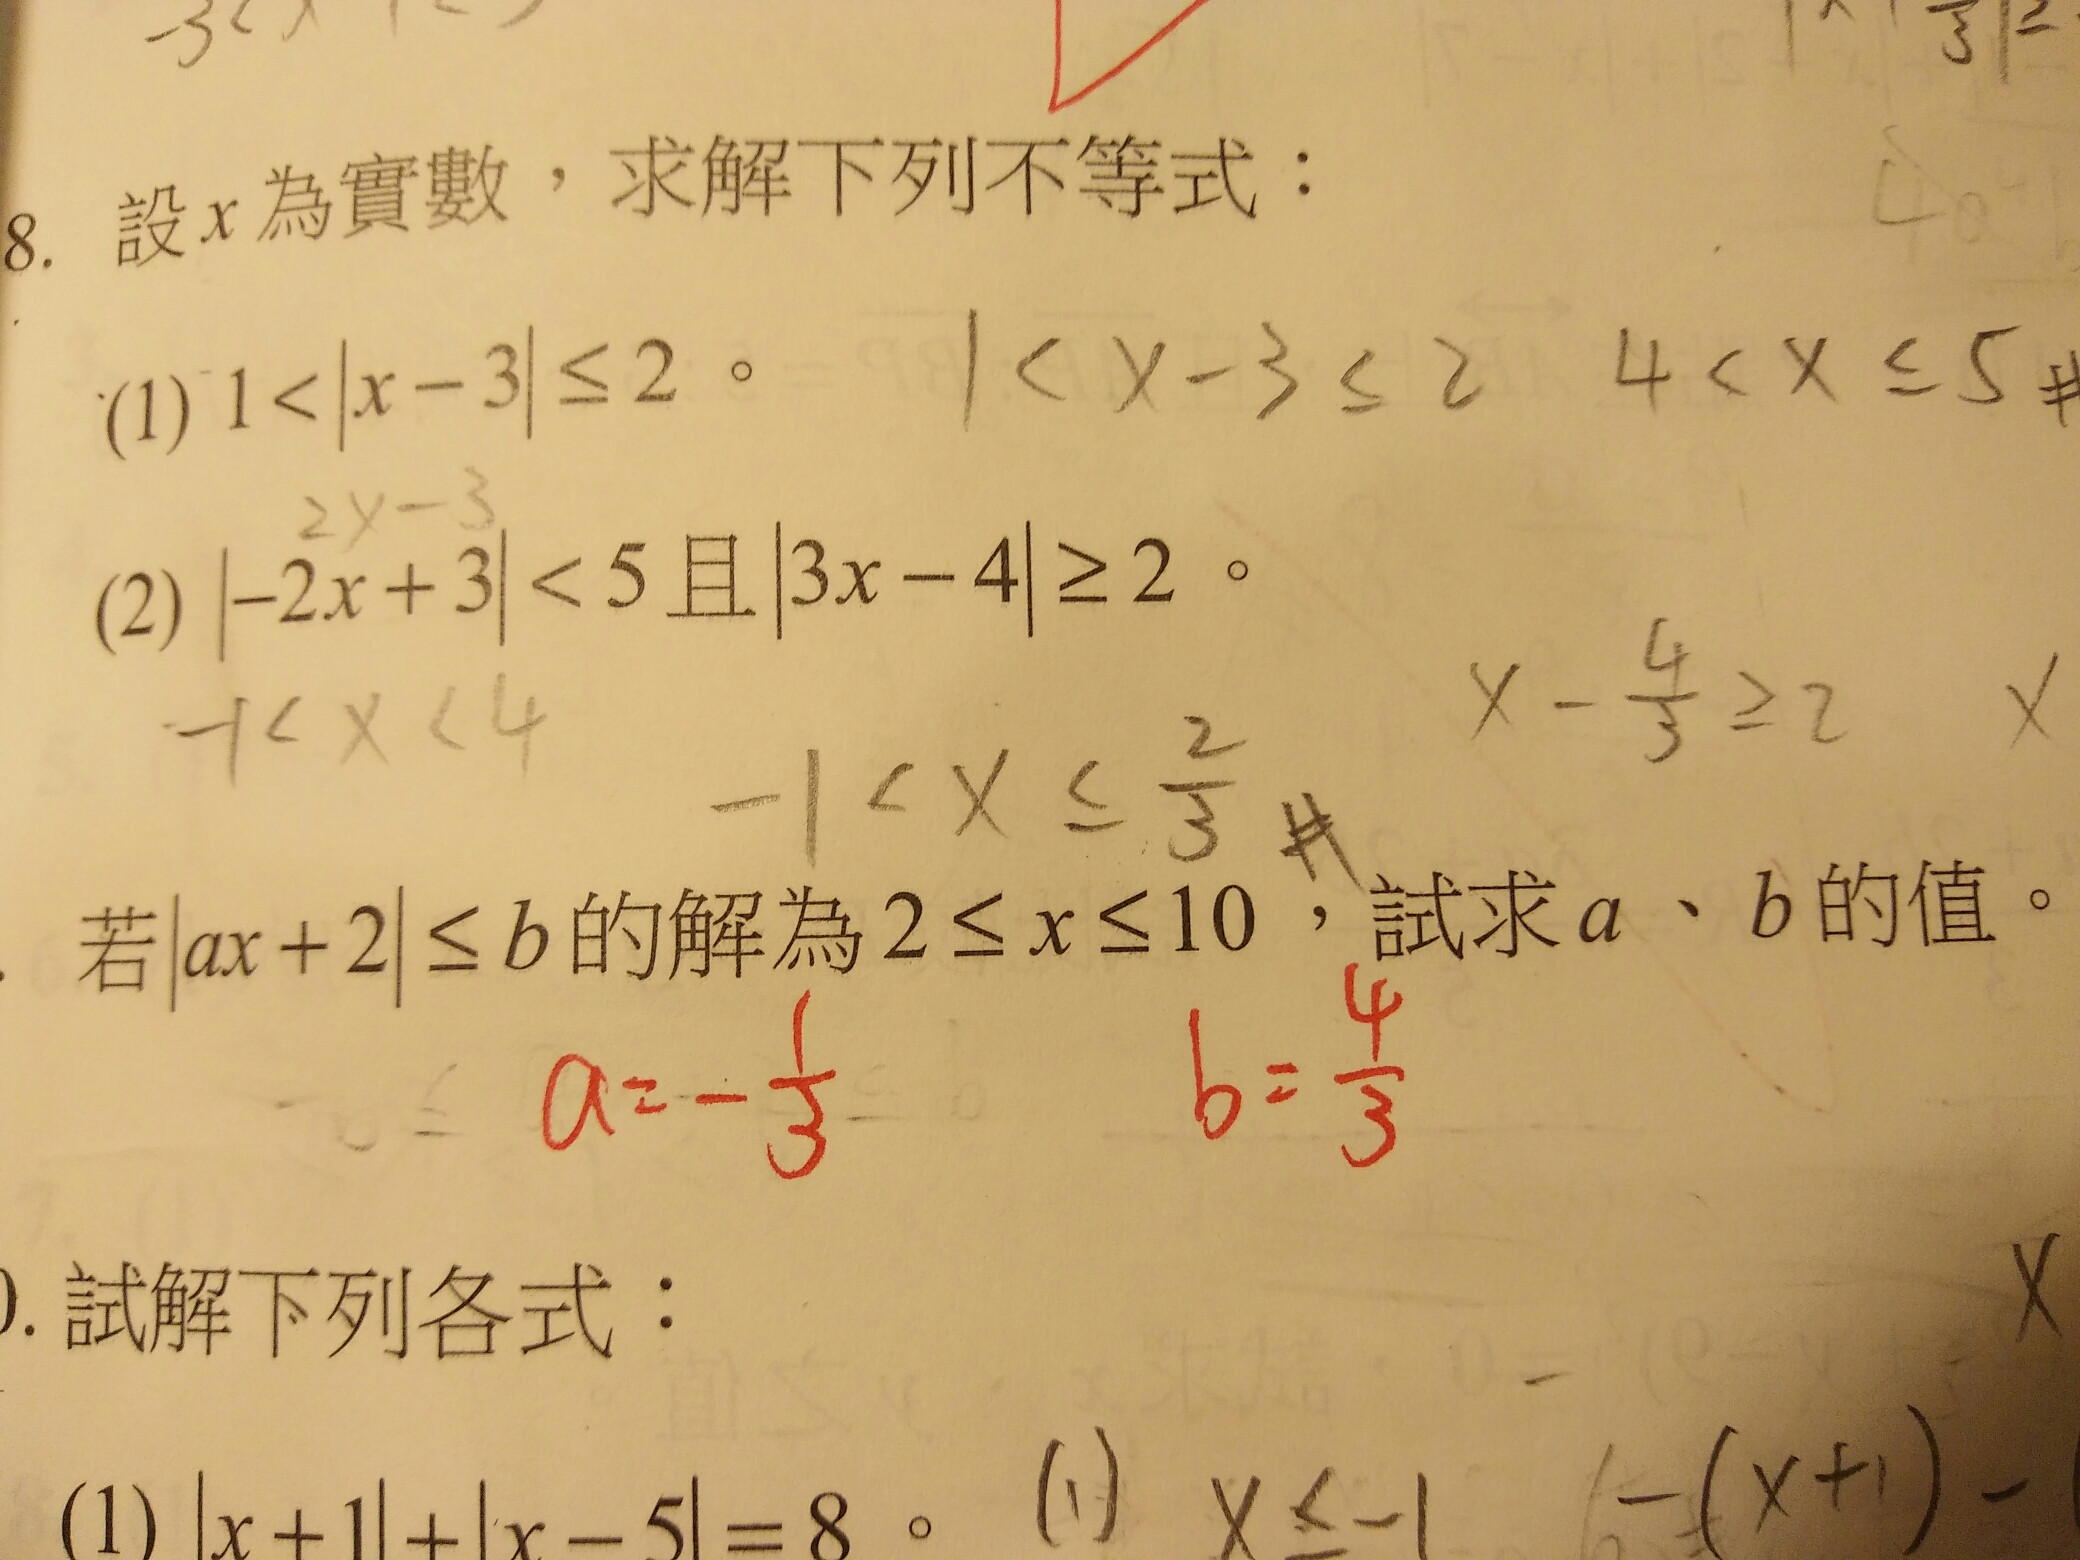 8. 設x為實數，求解下列不等式：
(1) 1<|x−3|≤2。 1<x−3≤2 4<x≤5 #
2x−3
(2) |−2x+3|<5且|3x−4|≥2。
−1<x<4 x−4/3≥2 x
−1<x≤2/3 #
若|ax+2|≤b的解為2≤x≤10，試求a、b的值。
a=−1/3 b=4/3
試解下列各式：
x
(1) |x+1|+|x−5|=8。 (1) x≤−1 −(x+1)−(